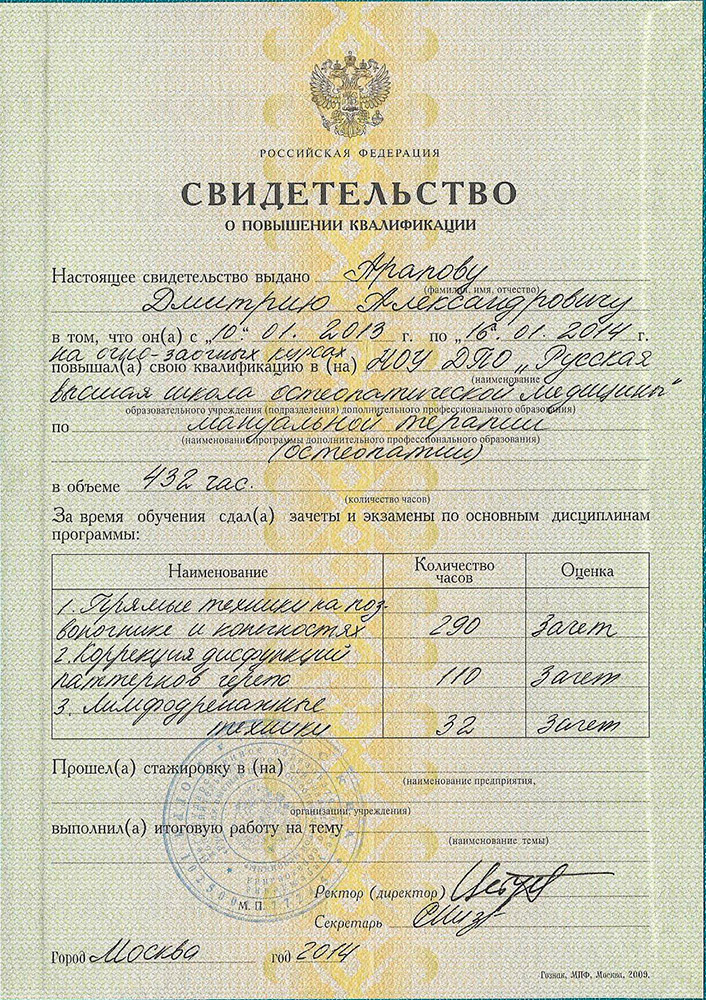 РОССИЙСКАЯ ФЕДЕРАЦИЯ
СВИДЕТЕЛЬСТВО
О ПОВЫШЕНИИ КВАЛИФИКАЦИИ
Настоящее свидетельство выдано Арапову
(фамилия, имя, отчество)
Дмитрию Александровичу
в том, что он(а) с „10“ 01. 2013 г. по „16“ 01. 2014 г.
на очно-заочных курсах
повышал(а) свою квалификацию в (на) НОУ ДПО „Русская
(наименование
высшая школа остеопатической медицины“
образовательного учреждения (подразделения) дополнительного профессионального образования)
по мануальной терапии
(наименование программы дополнительного профессионального образования)
(остеопатии)
в объеме 432 час.
(количество часов)
За время обучения сдал(а) зачеты и экзамены по основным дисциплинам
программы:
Наименование Количество часов Оценка
1. Прямые техники на поз-
воночнике и конечностях 290 Зачет
2. Коррекция дисфункций
паттернов черепа 110 Зачет
3. Лимфодренажные
техники 32 Зачет
Прошел(а) стажировку в (на)
(наименование предприятия,
организации, учреждения)
выполнил(а) итоговую работу на тему
(наименование темы)
Ректор (директор)
М. П.
Секретарь
Город Москва год 2014
Гознак, МПФ, Москва, 2009.